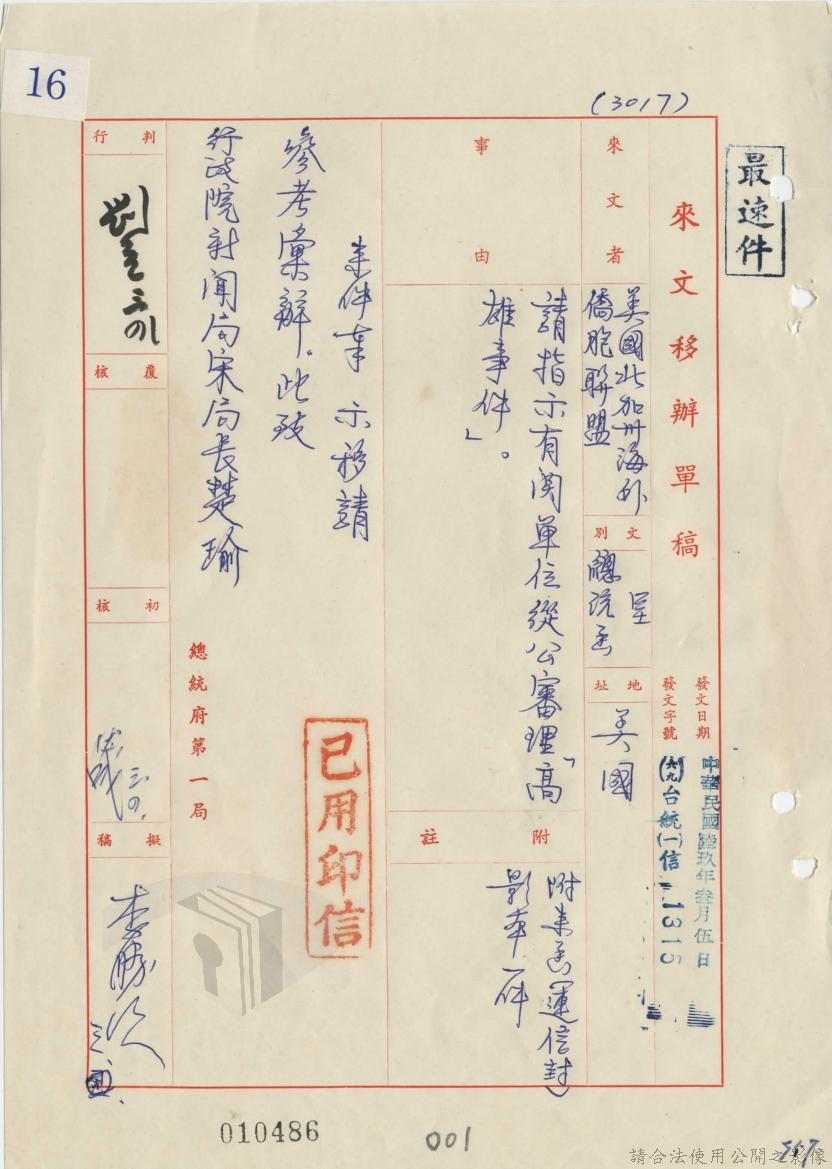 16
(3017)
最速件
來文移辦單稿
發文日期
中華民國陸玖年叁月伍日
發文字號
(六九)台統(一)信
1315
來文者
美國北加州海外
僑胞聯盟
文別
呈
總統函
地址
美國
事由
請指示有関單位從公審理「高
雄事件」。
附註
附來函連信封
影本一件
來件奉 示移請
參考彙辦。此致
行政院新聞局宋局長楚瑜
總統府第一局
已用印信
判行
覆核
初核
擬稿
010486
001
請合法使用公開之影像